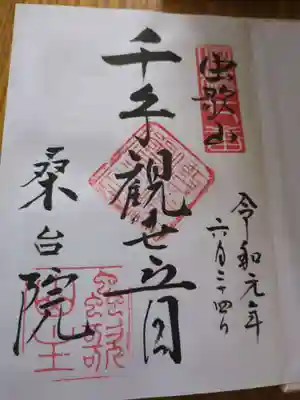 虫歌山
令和元年
六月二十四日
千手觀世音
桑台院